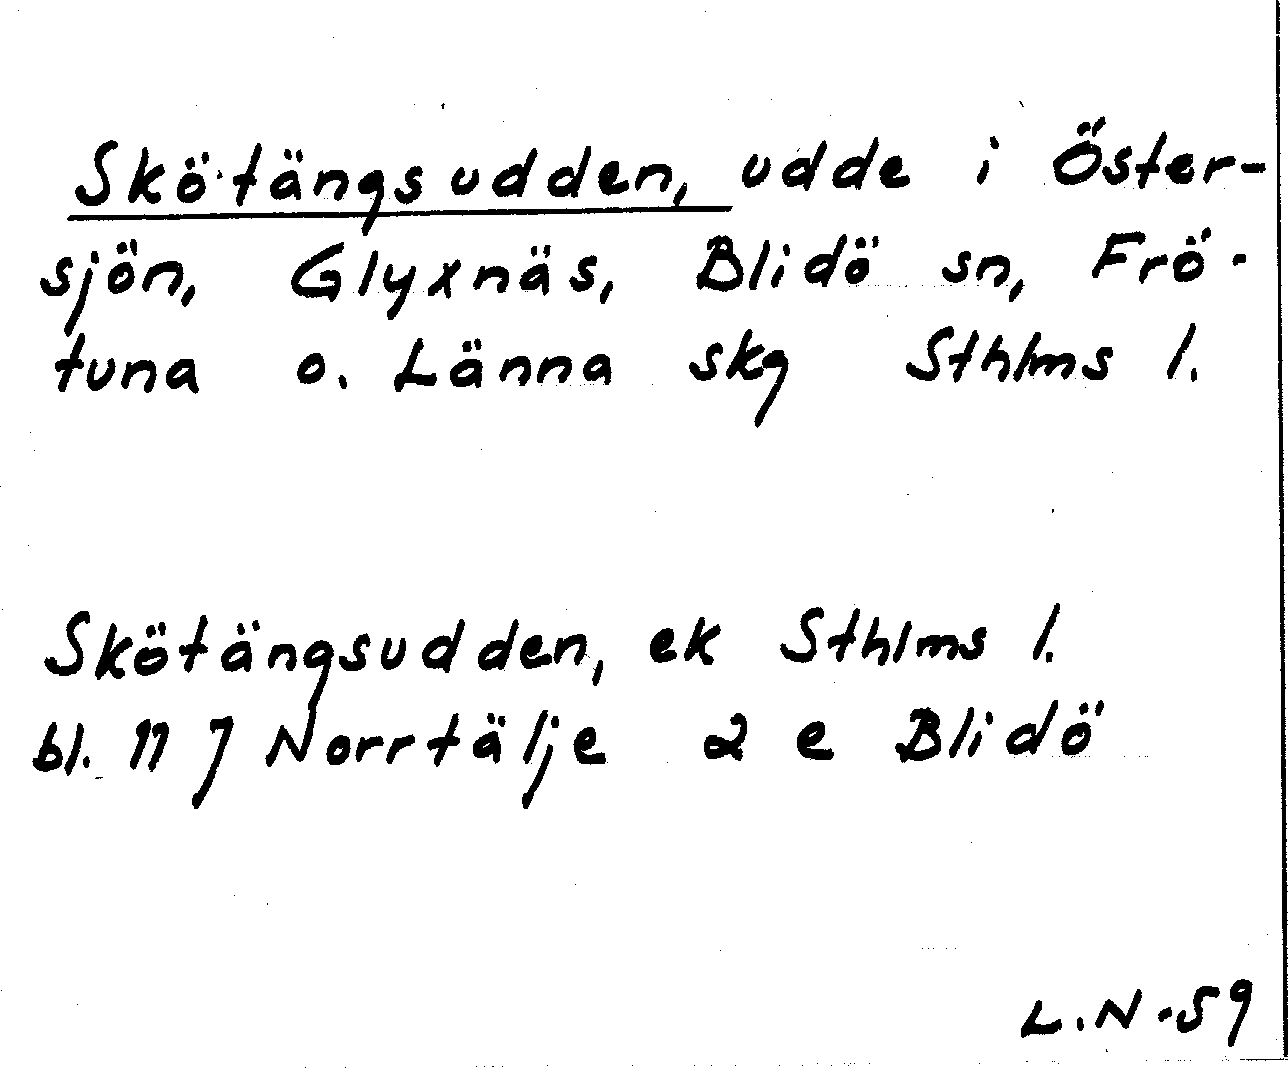 Skötängsudden, udde i Öster-
sjön, Glyxnäs, Blidö sn, Frö-
tuna o. Länna skg Sthlms l.
Skötängsudden, ek Sthlms l.
bl. 11 J Norrtälje 2 e Blidö
L.N-59